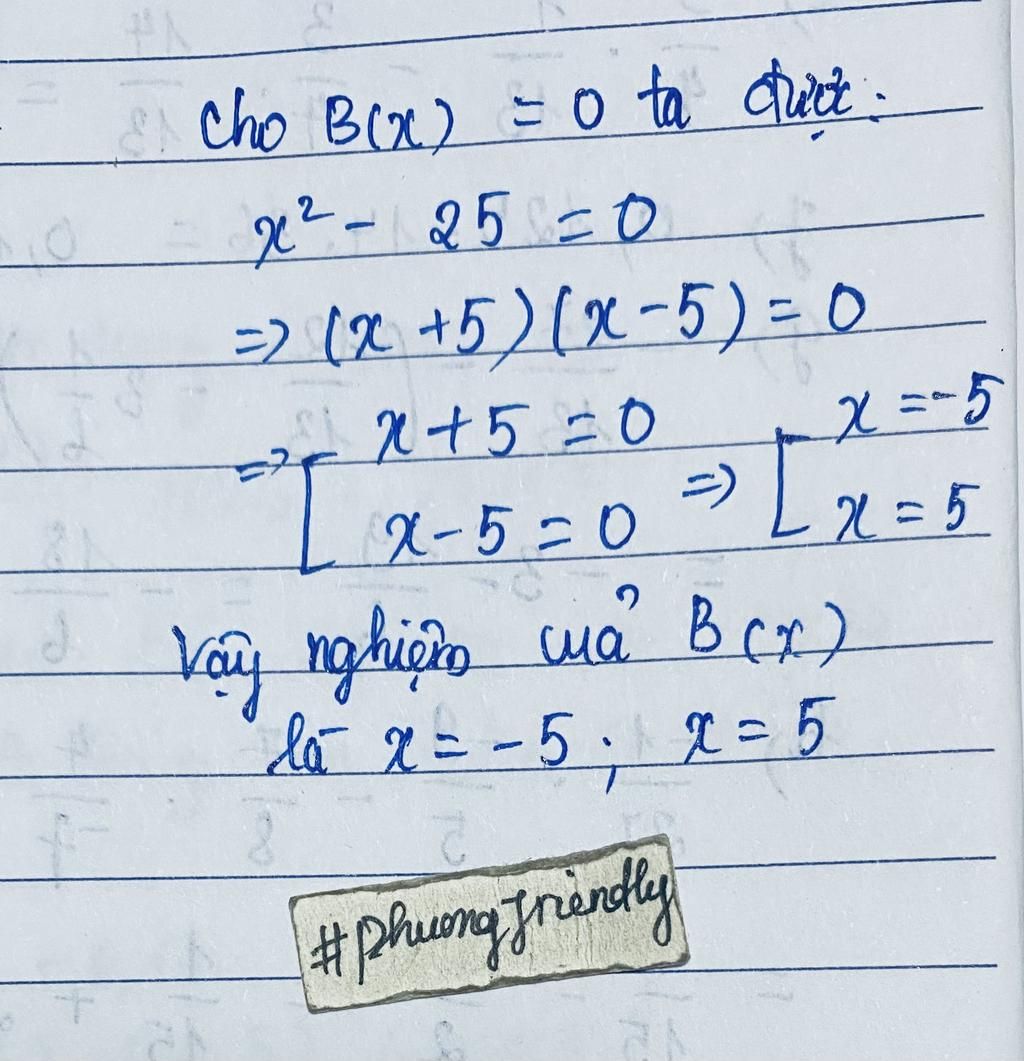 Cho B(x) = 0 ta được:
x² - 25 = 0
=> (x + 5) (x - 5) = 0
=> [ x + 5 = 0 => [ x = -5
x - 5 = 0 x = 5
Vậy nghiệm của B(x)
là x = -5 ; x = 5
#Phuongfriendly